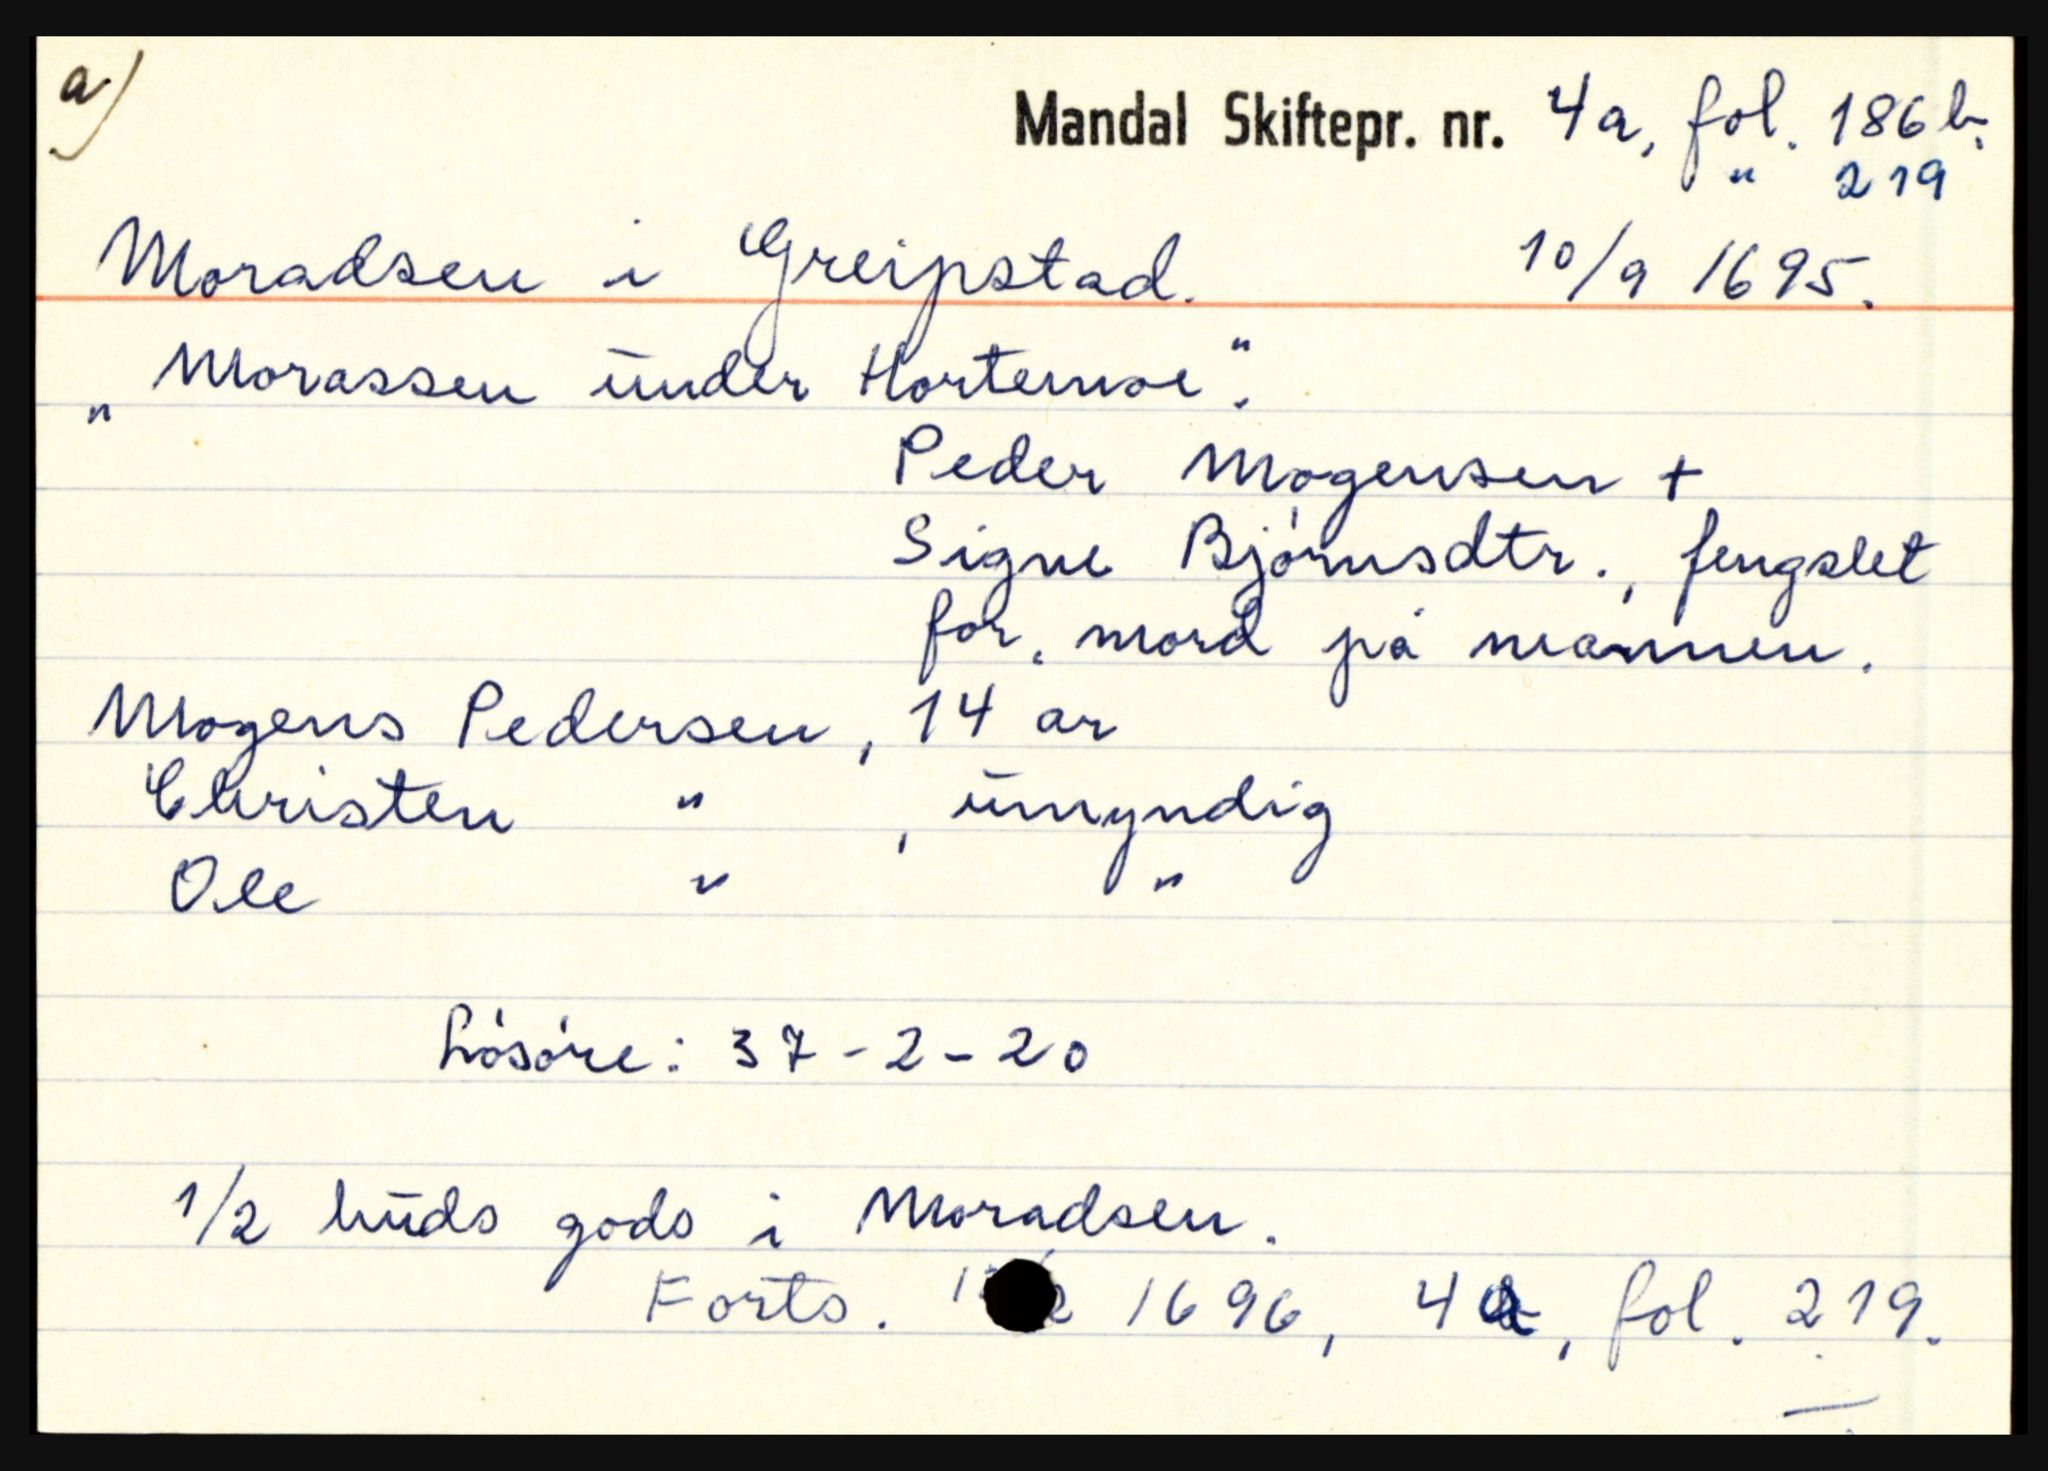 a)
Mandal Skiftepr. nr. 4a, fol. 186b.
" 219
Moradsen i Greipstad. 10/9 1695.
„Morassen under Hortemoe".
Peder Mogensen +
Signe Bjórnsdtr., fengslet
for. mord på mannen.
Mogens Pedersen, 14 år
Christen " , umyndig
Ole " "
Lósóre: 37-2-20
1/2 huds gods i Moradsen.
Forts. 1696, 4a, fol. 219.